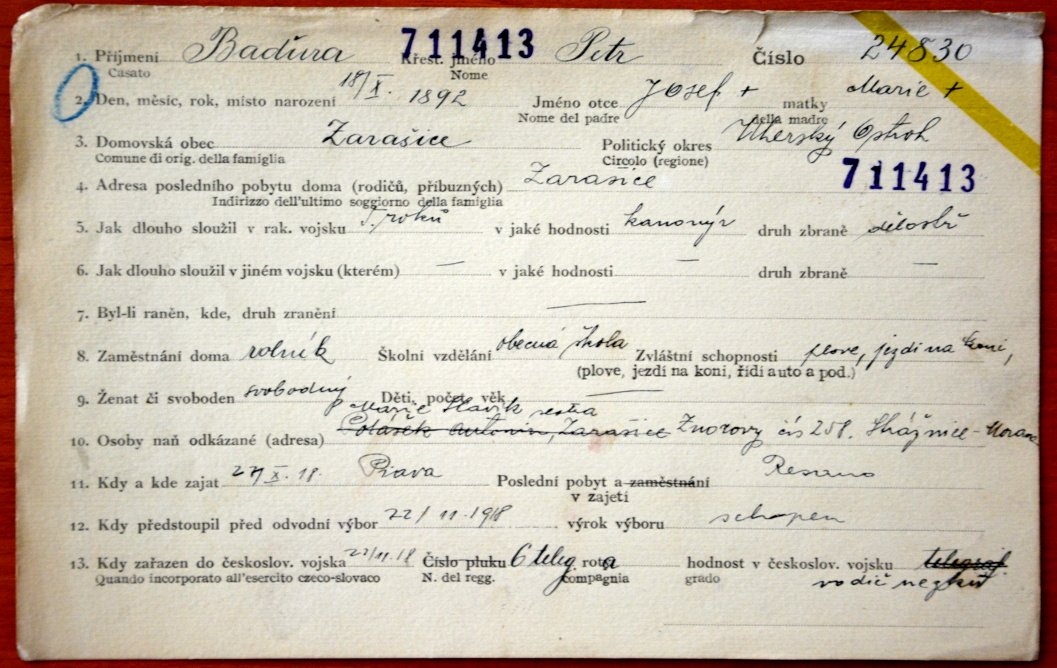 1. Příjmení Baďura 711413 Křest. jméno Petr Číslo 24830
Casato Nome
2. Den, měsíc, rok, místo narození 18/X. 1892 Jméno otce Josef + matky Marie +
Nome del padre della madre
3. Domovská obec Žarašice Politický okres Uherský Ostroh
Comune di orig. della famiglia Circolo (regione)
711413
4. Adresa posledního pobytu doma (rodičů, příbuzných) Žarašice
Indirizzo dell'ultimo soggiorno della famiglia
5. Jak dlouho sloužil v rak. vojsku roků v jaké hodnosti kanonýr druh zbraně dělostř
6. Jak dlouho sloužil v jiném vojsku (kterém) — v jaké hodnosti — druh zbraně —
7. Byl-li raněn, kde, druh zranění —
8. Zaměstnání doma rolník Školní vzdělání obecná škola Zvláštní schopnosti plove, jezdí na koni,
(plove, jezdí na koni, řídí auto a pod.)
9. Ženat či svoboden svobodný Děti, počet, věk —
Marie Slavík sestra
10. Osoby naň odkázané (adresa) Polášek Antonín, Žarašice Znorovy čís 258. Strážnice - Morava
11. Kdy a kde zajat 27/X. 18. Piava Poslední pobyt a zaměstnání
v zajetí
12. Kdy předstoupil před odvodní výbor 22/11.1918 výrok výboru schopen
13. Kdy zařazen do českoslov. vojska 22/11.18 Číslo pluku 6 teleg. rota hodnost v českoslov. vojsku telegraf
Quando incorporato all'esercito czeco-slovaco N. del regg. compagnia grado vodič